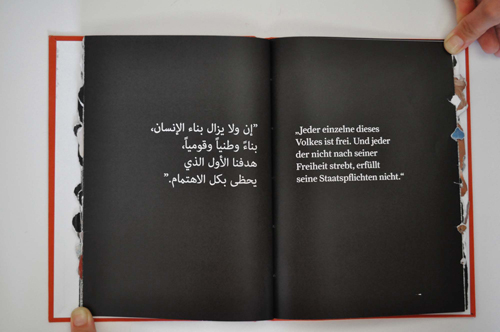 ”إن ولا يزال بناء الإنسان،
بناءً وطنياً وقومياً،
هدفنا الأول الذي
يحظى بكل الاهتمام.”
„Jeder einzelne dieses
Volkes ist frei. Und jeder
der nicht nach seiner
Freiheit strebt, erfüllt
seine Staatspflichten nicht.“